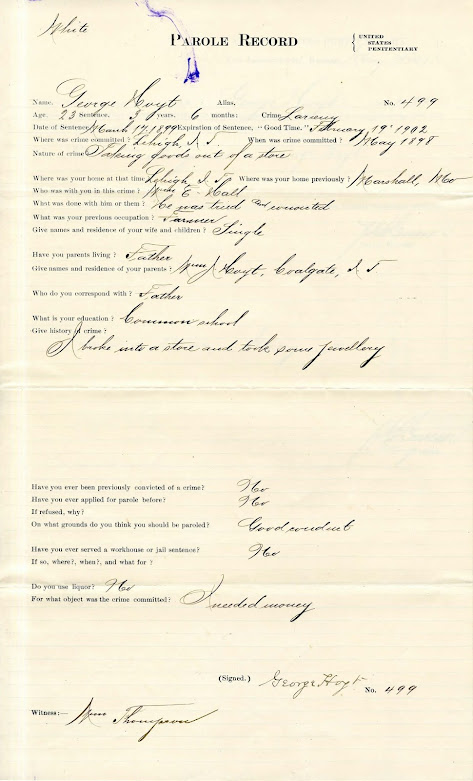 White
PAROLE RECORD
UNITED
STATES
PENITENTIARY
Name, George Hoyt Alias, No. 499
Age, 23 Sentence, 3 years. 6 months: Crime, Larceny
Date of Sentence, March 17, 1899 Expiration of Sentence, "Good Time," February 19" 1902
Where was crime committed? Lehigh, I T When was crime committed? May 1898
Nature of crime, Taking goods out of a store
Where was your home at that time, Lehigh, I. T. Where was your home previously? Marshall, Mo
Who was with you in this crime? Wm E. Hall
What was done with him or them? He was tried and convicted
What was your previous occupation? Farmer
Give names and residence of your wife and children? Single
Have you parents living? Father
Give names and residence of your parents? Wm J Hoyt, Coalgate, I T
Who do you correspond with? Father
What is your education? Common school
Give history of crime?
I broke into a store and took some Jewellery
Have you ever been previously convicted of a crime? No
Have you ever applied for parole before? No
If refused, why?
On what grounds do you think you should be paroled? Good conduct
Have you ever served a workhouse or jail sentence? No
If so, where?, when?, and what for?
Do you use liquor? No
For what object was the crime committed? I needed money
(Signed.) George Hoyt No. 499
Witness:— Wm Thompson